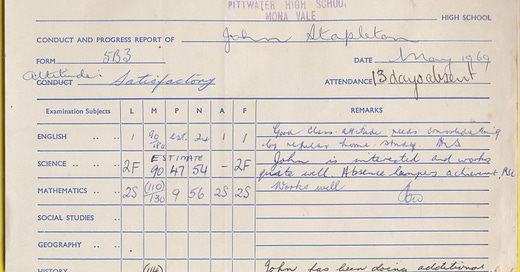 PITTWATER HIGH SCHOOL
MONA VALE
HIGH SCHOOL
CONDUCT AND PROGRESS REPORT OF John Stapleton
FORM 5B3 DATE May 1969
Attitude:
CONDUCT Satisfactory ATTENDANCE 13 days absent
Examination Subjects L M P N A F REMARKS
ENGLISH 1 90/180 est. 24 1 1 Good class attitude needs consolidating
by regular home-study.
ESTIMATE
SCIENCE 2F 90 47 54 - 2F John is interested and works
quite well. Absence hampers achievement.
MATHEMATICS 2S (110)/130 9 56 2S 2S Works well
SOCIAL STUDIES
GEOGRAPHY
HISTORY (114) John has been doing additional